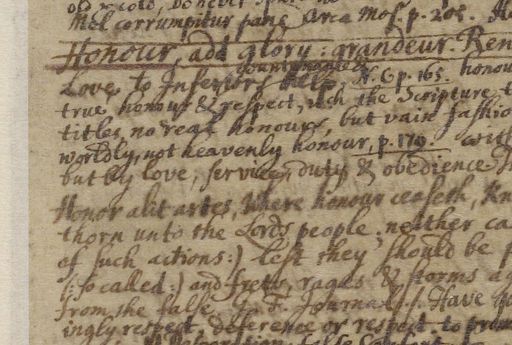 Mel corrumpitur pane Area Mos. p. 205.
Honour, add glory: grandeur. Ren
countenance
Love to Inferiors N. 6 p. 165. honou
true honour & respect, wch the Scripture t
titles, no real honours, but vain fashio
worldly, not heavenly honour, p. 179. with
but by love, service, duty & obedience
Honor alit artes, Where honour ceaseth, Kn
thorn unto the Lords people, neither ca
of such actions:) lest they should be
(: so called:) and frets, rages & storms ag
from the false. G. F. Journal. Have
ingly respect, deference or respect. to prom